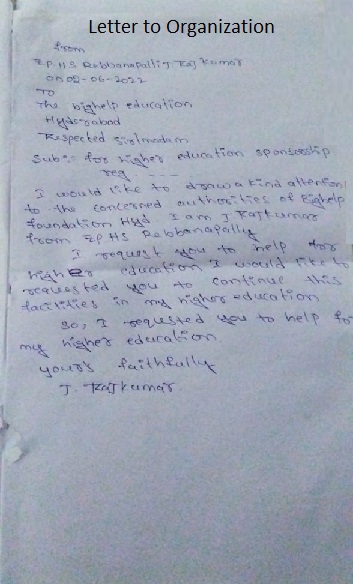 Letter to Organization
from
ZPHS Rebbanapally T. Rajkumar
on 08-06-2022
To
The bighelp education
Hyderabad
Respected sir/madam
Sub: for higher education sponsership
reg ----
I would like to draw a kind attention
to the concerned authorities of Bighelp
foundation Hyd I am J Rajkumar
from ZPHS Rebbanapally
I request you to help for
higher education I would like to
requested you to continue this
facilities in my higher education
So, I requested you to help for
my higher education.
yours faithfully
T. Rajkumar.